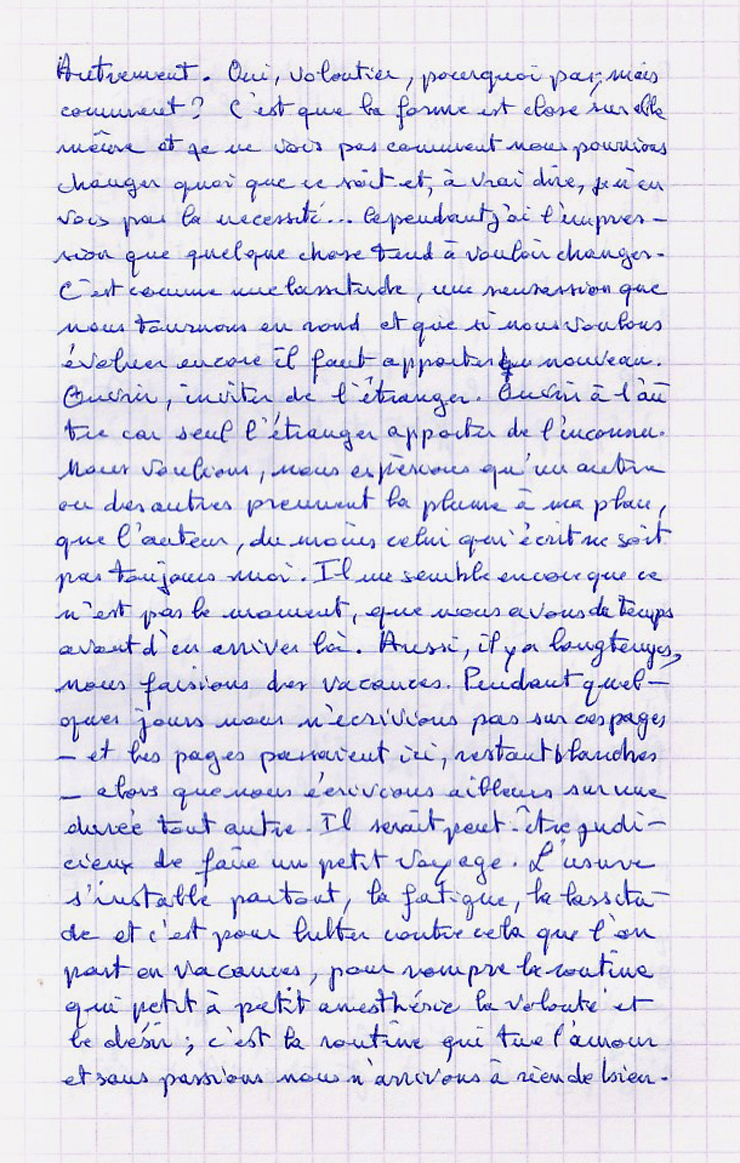 Autrement. Oui, volontier, pourquoi pas, mais
comment ? C'est que la forme est close sur elle
même et je ne vois pas comment nous pourrions
changer quoi que ce soit et, à vrai dire, je n'en
vois pas la nécessité... Cependant j'ai l'impres-
sion que quelque chose tend à vouloir changer.
C'est comme une lassitude, une sensassion que
nous tournons en rond et que si nous voulons
évoluer encore il faut apporter du nouveau.
Ouvrir, inviter de l'étranger. Ouvrir à l'au
tre car seul l'étranger apporter de l'inconnu.
Nous voulions, nous espérions qu'un autre
ou des autres prennent la plume à ma place,
que l'auteur, du moins celui qui écrit ne soit
pas toujours moi. Il me semble encore que ce
n'est pas le moment, que nous avons du temps
avant d'en arriver là. Aussi, il y a longtemps,
nous faisions des vacances. Pendant quel-
ques jours nous n'écrivions pas sur ces pages
- et les pages passaient ici, restant blanches
- alors que nous écrivions ailleurs sur une
durée tout autre. Il serait peut-être judi-
cieux de faire un petit voyage. L'usure
s'installe partout, la fatigue, la lassitu-
de et c'est pour lutter contre cela que l'on
part en vacances, pour rompre la routine
qui petit à petit anesthésie la volonté et
le désir ; c'est la routine qui tue l'amour
et sans passions nous n'arrivons à rien de bien.